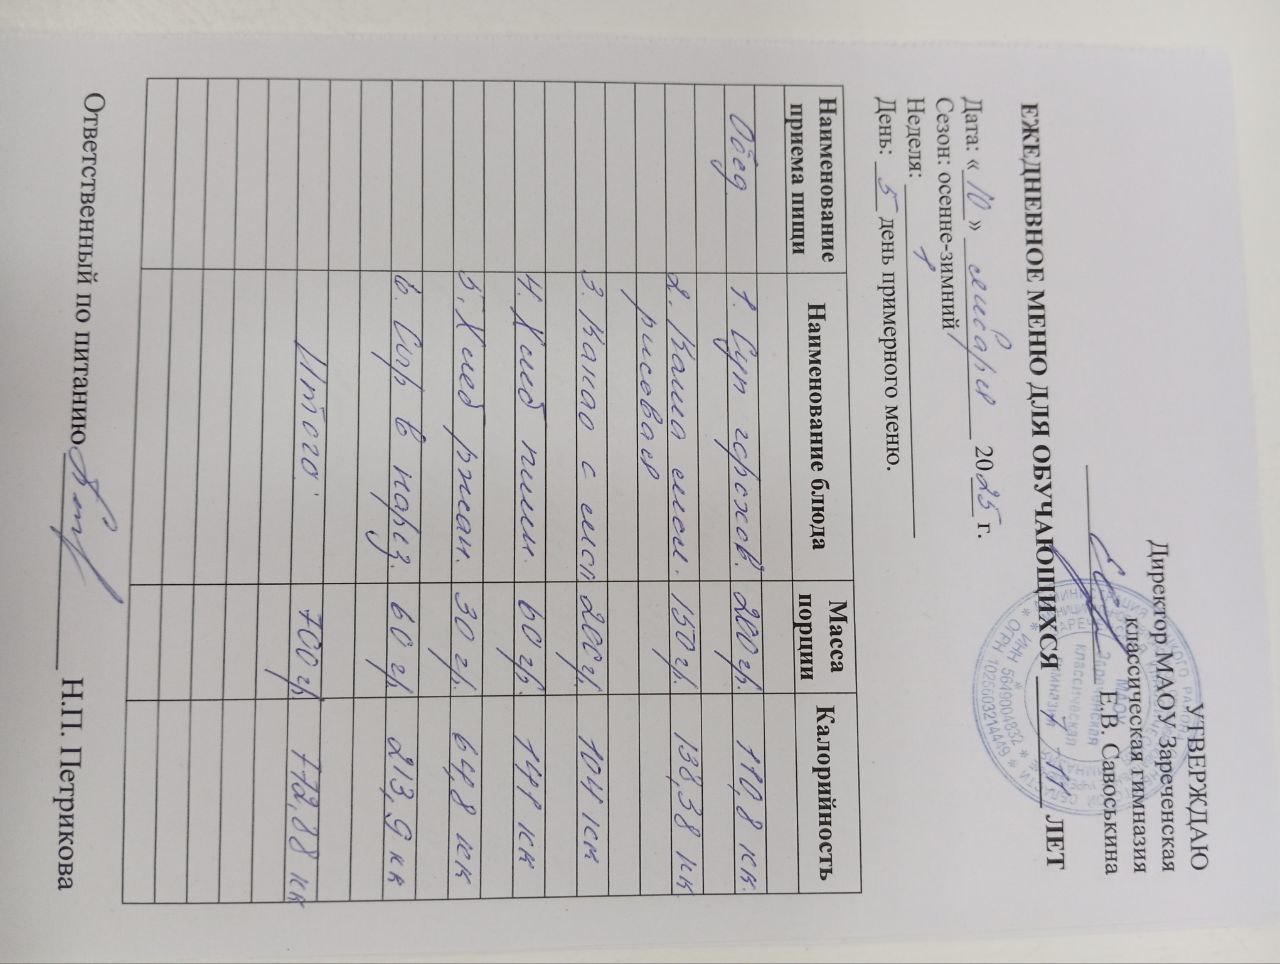 УТВЕРЖДАЮ
Директор МАОУ Зареченская
классическая гимназия
Е.В. Савоськина
ЕЖЕДНЕВНОЕ МЕНЮ ДЛЯ ОБУЧАЮЩИХСЯ 7-11 ЛЕТ
Дата: « 10 » января 2025 г.
Сезон: осенне-зимний
Неделя: 1
День: 5 день примерного меню.
Наименование приема пищи Наименование блюда Масса порции Калорийность
Обед 1. Суп горохов. 200 гр. 110,8 кк.
2. Каша мол. 150 гр. 138,38 кк
рисовая
3. Какао с мол 200 гр. 104 кк
4. Хлеб пшен. 60 гр. 141 кк
5. Хлеб ржан. 30 гр. 64,8 кк
6. Сыр в нарез. 60 гр. 213,9 кк
Итого: 700 гр 772,88 кк
Ответственный по питанию Н.П. Петрикова
ИНН 5649004832
ОГРН
Зареченская
классическая
гимназия